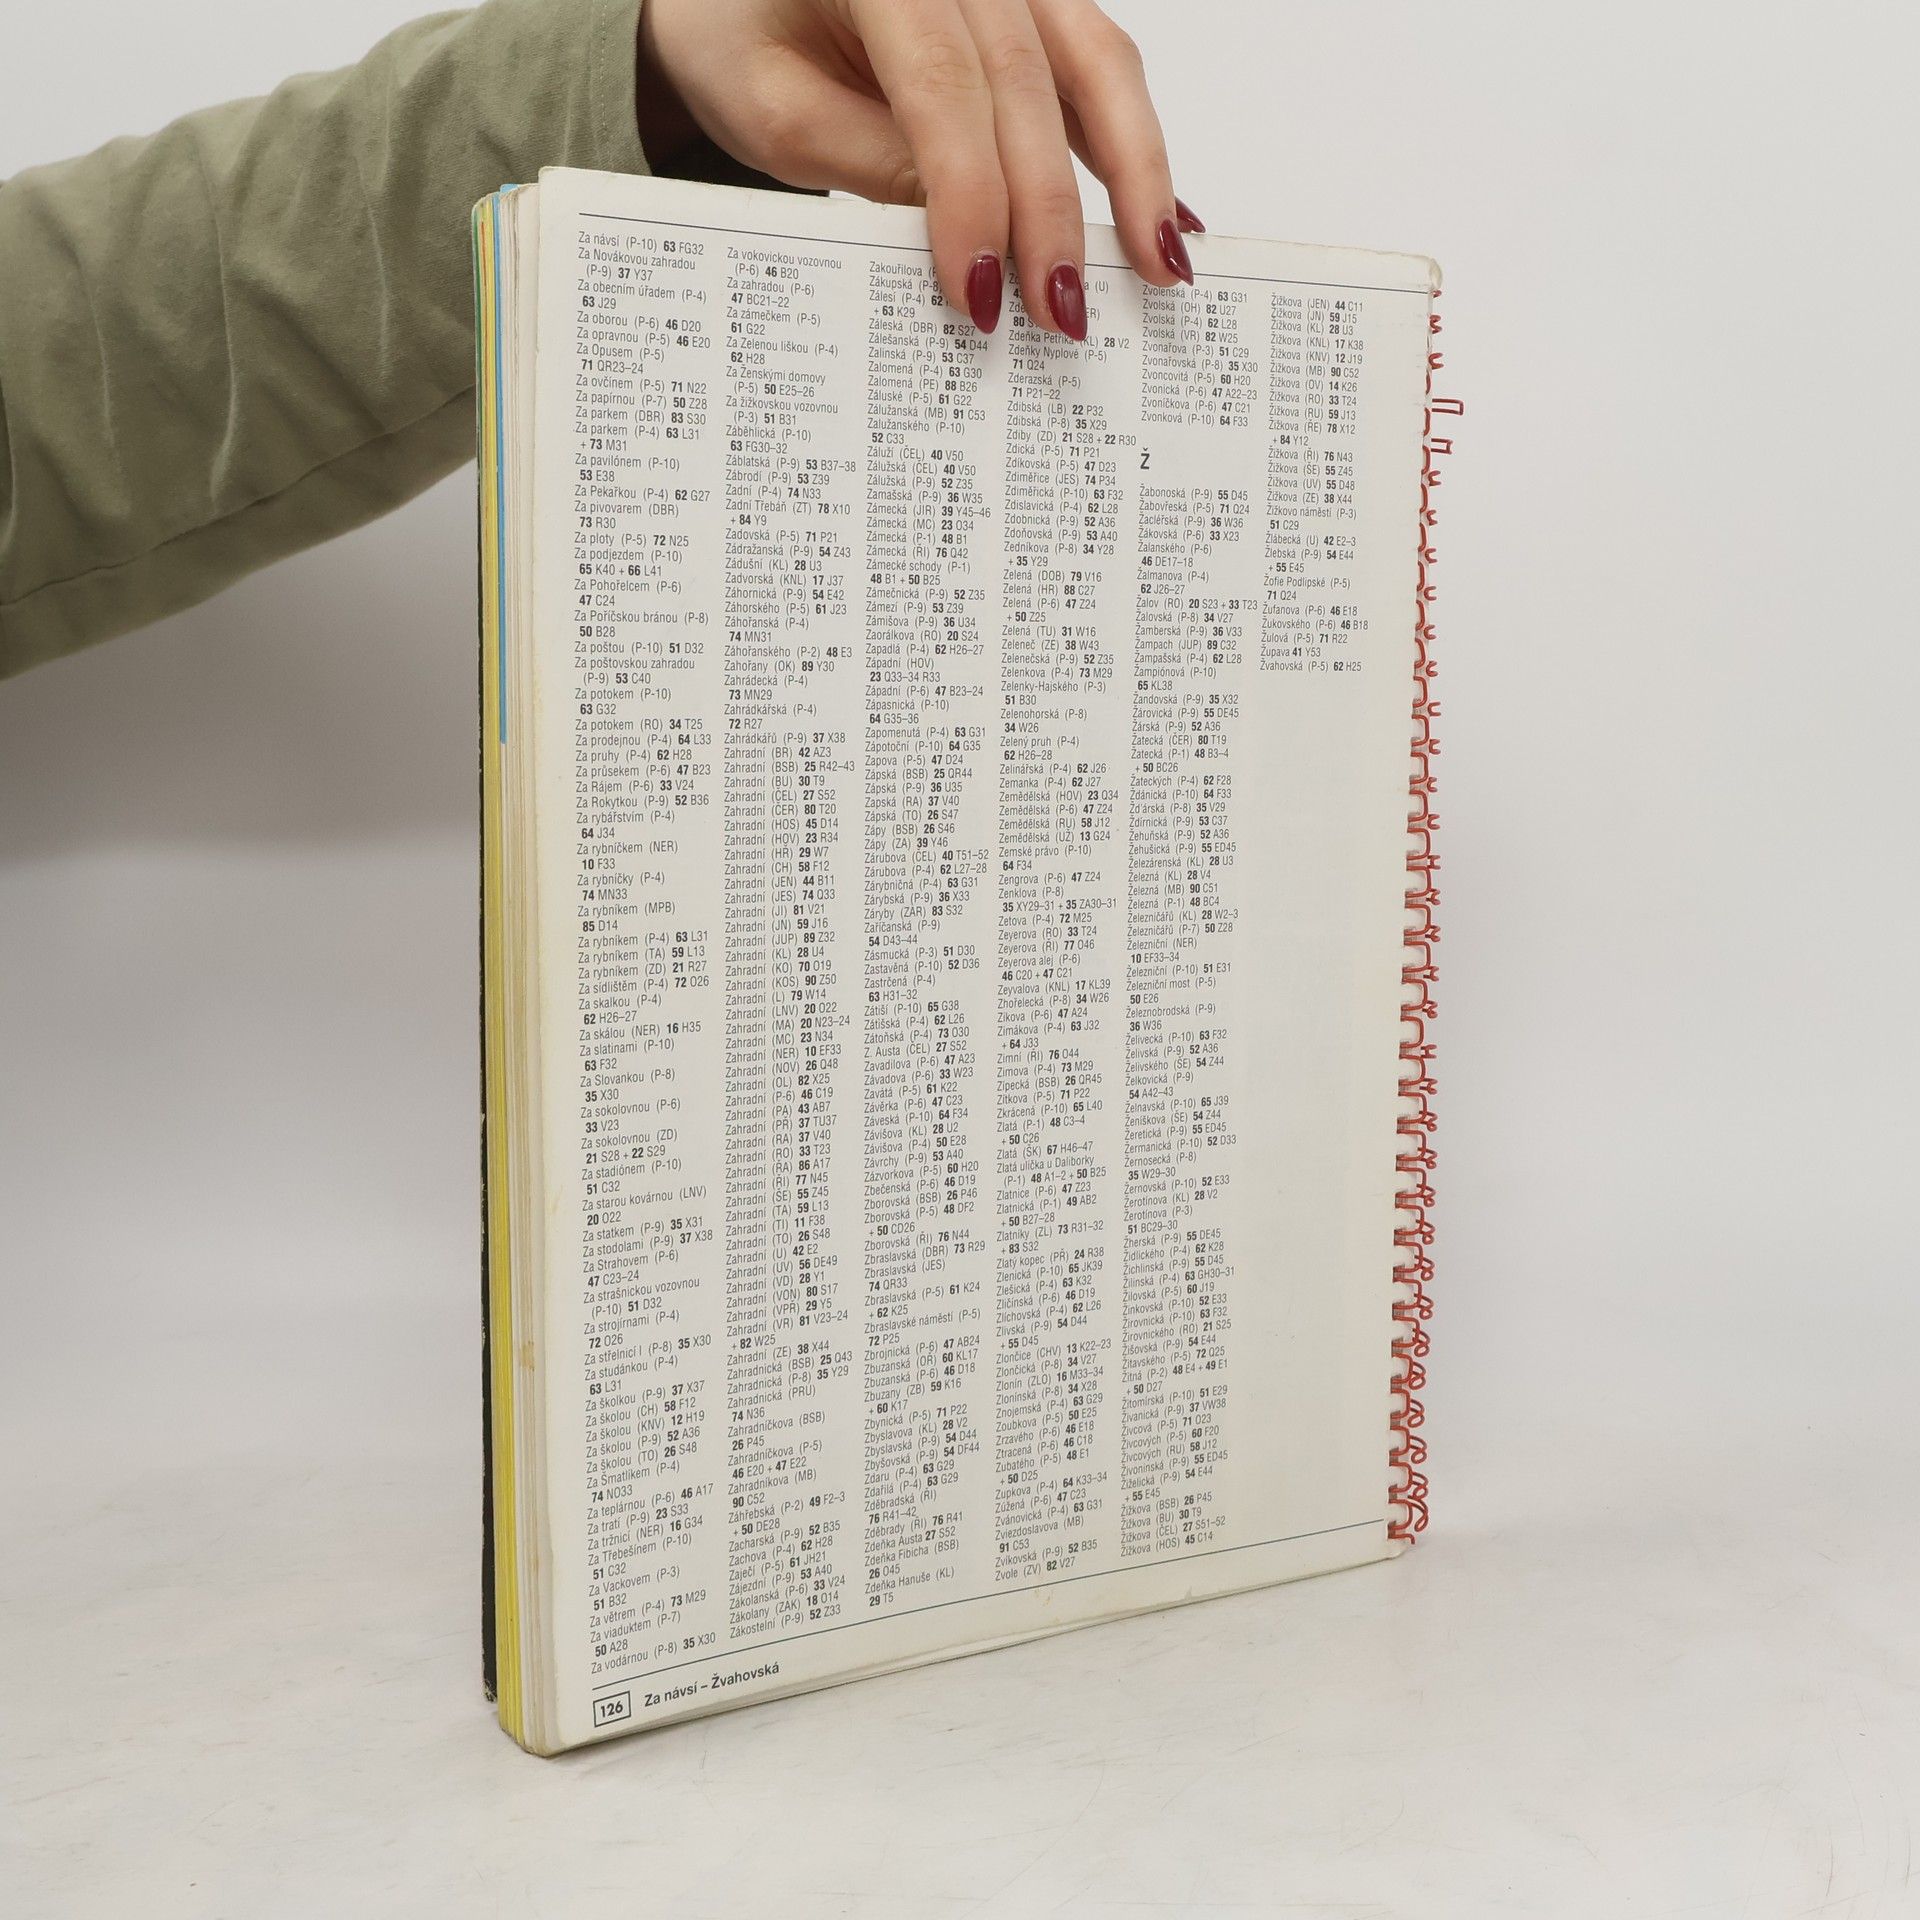 Za návsí (P-10) 63 FG32
Za Novákovou zahradou
(P-9) 37 Y37
Za obecním úřadem (P-4)
63 J29
Za oborou (P-6) 46 D20
Za opravnou (P-5) 46 E20
Za Opusem (P-5)
71 QR23–24
Za ovčínem (P-5) 71 N22
Za papírnou (P-7) 50 Z28
Za parkem (DBR) 83 S30
Za parkem (P-4) 63 L31
+ 73 M31
Za pavilónem (P-10)
53 E38
Za Pekařkou (P-4) 62 G27
Za pivovarem (DBR)
73 R30
Za ploty (P-5) 72 N25
Za podjezdem (P-10)
65 K40 + 66 L41
Za Pohořelcem (P-6)
47 C24
Za Poříčskou bránou (P-8)
50 B28
Za poštou (P-10) 51 D32
Za poštovskou zahradou
(P-9) 53 C40
Za potokem (P-10)
63 G32
Za potokem (RO) 34 T25
Za prodejnou (P-4) 64 L33
Za pruhy (P-4) 62 H28
Za průsekem (P-6) 47 B23
Za Rájem (P-6) 33 V24
Za Rokytkou (P-9) 52 B36
Za rybářstvím (P-4)
64 J34
Za rybníčkem (NER)
10 F33
Za rybníčky (P-4)
74 MN33
Za rybníkem (MPB)
85 D14
Za rybníkem (P-4) 63 L31
Za rybníkem (TA) 59 L13
Za rybníkem (ZD) 21 R27
Za sídlištěm (P-4) 72 O26
Za skalkou (P-4)
62 H26–27
Za skálou (NER) 16 H35
Za slatinami (P-10)
63 F32
Za Slovankou (P-8)
35 X30
Za sokolovnou (P-6)
33 V23
Za sokolovnou (ZD)
21 S28 + 22 S29
Za stadiónem (P-10)
51 C32
Za starou kovárnou (LNV)
20 O22
Za statkem (P-9) 35 X31
Za stodolami (P-9) 37 X38
Za Strahovem (P-6)
47 C23–24
Za strašnickou vozovnou
(P-10) 51 D32
Za strojírnami (P-4)
72 O26
Za střelnicí I (P-8) 35 X30
Za studánkou (P-4)
63 L31
Za školkou (P-9) 37 X37
Za školou (CH) 58 F12
Za školou (KNV) 12 H19
Za školou (P-9) 52 A36
Za školou (TO) 26 S48
Za Šmatlíkem (P-4)
74 NO33
Za teplárnou (P-6) 46 A17
Za tratí (P-9) 23 S33
Za tržnicí (NER) 16 G34
Za Třebešínem (P-10)
51 C32
Za Vackovem (P-3)
51 B32
Za větrem (P-4) 73 M29
Za viaduktem (P-7)
50 A28
Za vodárnou (P-8) 35 X30
Za vokovickou vozovnou
(P-6) 46 B20
Za zahradou (P-6)
47 BC21–22
Za zámečkem (P-5)
61 G22
Za Zelenou liškou (P-4)
62 H28
Za Ženskými domovy
(P-5) 50 E25–26
Za žižkovskou vozovnou
(P-3) 51 B31
Záběhlická (P-10)
63 FG30–32
Záblatská (P-9) 53 B37–38
Zábrodí (P-9) 53 Z39
Zadní (P-4) 74 N33
Zadní Třebáň (ZT) 78 X10
+ 84 Y9
Zadovská (P-5) 71 P21
Zádražanská (P-9) 54 Z43
Zádušní (KL) 28 U3
Zadvorská (KNL) 17 J37
Záhornická (P-9) 54 E42
Záhorského (P-5) 61 J23
Záhořanská (P-4)
74 MN31
Záhořanského (P-2) 48 E3
Zahořany (OK) 89 Y30
Zahrádecká (P-4)
73 MN29
Zahrádkářská (P-4)
72 R27
Zahrádkářů (P-9) 37 X38
Zahradní (BR) 42 AZ3
Zahradní (BSB) 25 R42–43
Zahradní (BU) 30 T9
Zahradní (ČEL) 27 S52
Zahradní (ČER) 80 T20
Zahradní (HOS) 45 D14
Zahradní (HOV) 23 R34
Zahradní (HR) 29 W7
Zahradní (CH) 58 F12
Zahradní (JEN) 44 B11
Zahradní (JES) 74 Q33
Zahradní (JI) 81 V21
Zahradní (JN) 59 J16
Zahradní (JUP) 89 Z32
Zahradní (KL) 28 U4
Zahradní (KO) 70 O19
Zahradní (KOS) 90 Z50
Zahradní (L) 79 W14
Zahradní (LNV) 20 O22
Zahradní (MA) 20 N23–24
Zahradní (MC) 23 N34
Zahradní (NER) 10 EF33
Zahradní (NOV) 26 Q48
Zahradní (OL) 82 X25
Zahradní (P-6) 46 C19
Zahradní (PA) 43 AB7
Zahradní (PŘ) 37 TU37
Zahradní (RA) 37 V40
Zahradní (RO) 33 T23
Zahradní (ŘA) 86 A17
Zahradní (ŘI) 77 N45
Zahradní (ŠE) 55 Z45
Zahradní (TA) 59 L13
Zahradní (TI) 11 F38
Zahradní (TO) 26 S48
Zahradní (U) 42 E2
Zahradní (UV) 56 DE49
Zahradní (VD) 28 Y1
Zahradní (VON) 80 S17
Zahradní (VPR) 29 Y5
Zahradní (VR) 81 V23–24
+ 82 W25
Zahradní (ZE) 38 X44
Zahradnická (BSB) 25 Q43
Zahradnická (P-8) 35 Y29
Zahradnická (PRU)
74 N36
Zahradníčkova (BSB)
26 P45
Zahradníčkova (P-5)
46 E20 + 47 E22
Zahradníkova (MB)
90 C52
Záhřebská (P-2) 49 F2–3
+ 50 DE28
Zacharská (P-9) 52 B35
Zachova (P-4) 62 H28
Zaječí (P-5) 61 JH21
Zájezdní (P-9) 53 A40
Zákolanská (P-6) 33 V24
Zákolany (ZAK) 18 O14
Zákostelní (P-9) 52 Z33
Zakouřilova
Zákupská (P-8)
Zálesí (P-4) 62
+ 63 K29
Záleská (DBR) 82 S27
Zálešanská (P-9) 54 D44
Zalinská (P-9) 53 C37
Zalomená (P-4) 63 G30
Zalomená (PE) 88 B26
Záluské (P-5) 61 G22
Zálužanská (MB) 91 C53
Zalužanského (P-10)
52 C33
Záluží (ČEL) 40 V50
Zálužská (ČEL) 40 V50
Zálužská (P-9) 52 Z35
Zamašská (P-9) 36 W35
Zámecká (JIR) 39 Y45–46
Zámecká (MC) 23 O34
Zámecká (P-1) 48 B1
Zámecká (ŘI) 76 Q42
Zámecké schody (P-1)
48 B1 + 50 B25
Zámečnická (P-9) 52 Z35
Zámezí (P-9) 53 Z39
Zámišova (P-9) 36 U34
Zaorálkova (RO) 20 S24
Zapadlá (P-4) 62 H26–27
Západní (HOV)
23 Q33–34 R33
Západní (P-6) 47 B23–24
Zápasnická (P-10)
64 G35–36
Zapomenutá (P-4) 63 G31
Zápotoční (P-10) 64 G35
Zapova (P-5) 47 D24
Zápská (BSB) 25 QR44
Zápská (P-9) 36 U35
Zapská (RA) 37 V40
Zápská (TO) 26 S47
Zápy (BSB) 26 S46
Zápy (ZA) 39 Y46
Zárubova (ČEL) 40 T51–52
Zárubova (P-4) 62 L27–28
Zárybničná (P-4) 63 G31
Zárybská (P-9) 36 X33
Záryby (ZÁR) 83 S32
Zaříčanská (P-9)
54 D43–44
Zásmucká (P-3) 51 D30
Zastavěná (P-10) 52 D36
Zastrčená (P-4)
63 H31–32
Zátiší (P-10) 65 G38
Zátišská (P-4) 62 L26
Zátoňská (P-4) 73 O30
Z. Austa (ČEL) 27 S52
Zavadilova (P-6) 47 A23
Závadova (P-6) 33 W23
Zavátá (P-5) 61 K22
Závěrka (P-6) 47 C23
Záveská (P-10) 64 F34
Závišova (KL) 28 U2
Závišova (P-4) 50 E28
Závrchy (P-9) 53 A40
Zázvorkova (P-5) 60 H20
Zbečenská (P-6) 46 D19
Zborovská (BSB) 26 P46
Zborovská (P-5) 48 DF2
+ 50 CD26
Zborovská (ŘI) 76 N44
Zbraslavská (DBR) 73 R29
Zbraslavská (JES)
74 QR33
Zbraslavská (P-5) 61 K24
+ 62 K25
Zbraslavské náměstí (P-5)
72 P25
Zbrojnická (P-6) 47 AB24
Zbuzanská (OŘ) 60 KL17
Zbuzanská (P-6) 46 D18
Zbuzany (ZB) 59 K16
+ 60 K17
Zbynická (P-5) 71 P22
Zbyslavova (KL) 28 V2
Zbyslavská (P-9) 54 D44
Zbyšovská (P-9) 54 DF44
Zdaru (P-4) 63 G29
Zdařilá (P-4) 63 G29
Zděbradská (ŘI)
76 R41–42
Zděbrady (ŘI) 76 R41
Zdeňka Austa 27 S52
Zdeňka Fibicha (BSB)
26 O45
Zdeňka Hanuše (KL)
29 T5
80
Zdeňka Petřika (KL) 28 V2
Zdeňky Nyplové (P-5)
71 Q24
Zderazská (P-5)
71 P21–22
Zdibská (LB) 22 P32
Zdibská (P-8) 35 X29
Zdiby (ZD) 21 S28 + 22 R30
Zdická (P-5) 71 P21
Zdíkovská (P-5) 47 D23
Zdiměřice (JES) 74 P34
Zdiměřická (P-10) 63 F32
Zdislavická (P-4) 62 L28
Zdobnická (P-9) 52 A36
Zdoňovská (P-9) 53 A40
Zedníkova (P-8) 34 Y28
+ 35 Y29
Zelená (DOB) 79 V16
Zelená (HR) 88 C27
Zelená (P-6) 47 Z24
+ 50 Z25
Zelená (TU) 31 W16
Zeleneč (ZE) 38 W43
Zelenečská (P-9) 52 Z35
Zelenkova (P-4) 73 M29
Zelenky-Hajského (P-3)
51 B30
Zelenohorská (P-8)
34 W26
Zelený pruh (P-4)
62 H26–28
Zelinářská (P-4) 62 J26
Zemanka (P-4) 62 J27
Zemědělská (HOV) 23 Q34
Zemědělská (P-6) 47 Z24
Zemědělská (RU) 58 J12
Zemědělská (UŽ) 13 G24
Zemské právo (P-10)
64 F34
Zengrova (P-6) 47 Z24
Zenklova (P-8)
35 XY29–31 + 35 ZA30–31
Zetova (P-4) 72 M25
Zeyerova (RO) 33 T24
Zeyerova (ŘI) 77 O46
Zeyerova alej (P-6)
46 C20 + 47 C21
Zeyvalova (KNL) 17 KL39
Zhořelecká (P-8) 34 W26
Zikova (P-6) 47 A24
Zimákova (P-4) 63 J32
+ 64 J33
Zimní (ŘI) 76 O44
Zimova (P-4) 73 M29
Zípecká (BSB) 26 QR45
Zítkova (P-5) 71 P22
Zkrácená (P-10) 65 L40
Zlatá (P-1) 48 C3–4
+ 50 C26
Zlatá (ŠK) 67 H46–47
Zlatá ulička u Daliborky
(P-1) 48 A1–2 + 50 B25
Zlatnice (P-6) 47 Z23
Zlatnická (P-1) 49 AB2
+ 50 B27–28
Zlatníky (ZL) 73 R31–32
+ 83 S32
Zlatý kopec (PŘ) 24 R38
Zlenická (P-10) 65 JK39
Zlešická (P-4) 63 K32
Zličínská (P-6) 46 D19
Zlíchovská (P-4) 62 L26
Zlivská (P-9) 54 D44
+ 55 D45
Zlončice (CHV) 13 K22–23
Zlončická (P-8) 34 V27
Zlonín (ZLO) 16 M33–34
Zlonínská (P-8) 34 X28
Znojemská (P-4) 63 G29
Zoubkova (P-5) 50 E25
Zrzavého (P-6) 46 E18
Ztracená (P-6) 46 C18
Zubatého (P-5) 48 E1
+ 50 D25
Zupkova (P-4) 64 K33–34
Zúžená (P-6) 47 C23
Zvánovická (P-4) 63 G31
Zviezdoslavova (MB)
91 C53
Zvíkovská (P-9) 52 B35
Zvole (ZV) 82 V27
Zvolenská (P-4) 63 G31
Zvolská (OH) 82 U27
Zvolská (P-4) 62 L28
Zvolská (VR) 82 W25
Zvonařova (P-3) 51 C29
Zvonařovská (P-8) 35 X30
Zvoncovitá (P-5) 60 H20
Zvonická (P-6) 47 A22–23
Zvoníčkova (P-6) 47 C21
Zvonková (P-10) 64 F33
Ž
Žabonoská (P-9) 55 D45
Žabovřeská (P-5) 71 Q24
Žacléřská (P-9) 36 W36
Žákovská (P-6) 33 X23
Žalanského (P-6)
46 DE17–18
Žalmanova (P-4)
62 J26–27
Žalov (RO) 20 S23 + 33 T23
Žalovská (P-8) 34 V27
Žamberská (P-9) 36 V33
Žampach (JUP) 89 C32
Žampašská (P-4) 62 L28
Žampiónová (P-10)
65 KL38
Žandovská (P-9) 35 X32
Žárovická (P-9) 55 DE45
Žárská (P-9) 52 A36
Žatecká (ČER) 80 T19
Žatecká (P-1) 48 B3–4
+ 50 BC26
Žateckých (P-4) 62 F28
Ždánická (P-10) 64 F33
Žďárská (P-8) 35 V29
Ždírnická (P-9) 53 C37
Žehuňská (P-9) 52 A36
Žehušická (P-9) 55 ED45
Železárenská (KL) 28 U3
Železná (KL) 28 V4
Železná (MB) 90 C51
Železná (P-1) 48 BC4
Železničářů (KL) 28 W2–3
Železničářů (P-7) 50 Z28
Železniční (NER)
10 EF33–34
Železniční (P-10) 51 E31
Železniční most (P-5)
50 E26
Železnobrodská (P-9)
36 W36
Želivecká (P-10) 63 F32
Želivská (P-9) 52 A36
Želivského (ŠE) 54 Z44
Želkovická (P-9)
54 A42–43
Želnavská (P-10) 65 J39
Ženíškova (ŠE) 54 Z44
Žeretická (P-9) 55 ED45
Žermanická (P-10) 52 D33
Žernosecká (P-8)
35 W29–30
Žernovská (P-10) 52 E33
Žerotínova (KL) 28 V2
Žerotínova (P-3)
51 BC29–30
Žherská (P-9) 55 DE45
Židlického (P-4) 62 K28
Žichlinská (P-9) 55 D45
Žilinská (P-4) 63 GH30–31
Žilovská (P-5) 60 J19
Žinkovská (P-10) 52 E33
Žirovnická (P-10) 63 F32
Žirovnického (RO) 21 S25
Žišovská (P-9) 54 E44
Žitavského (P-5) 72 Q25
Žitná (P-2) 48 E4 + 49 E1
+ 50 D27
Žitomírská (P-10) 51 E29
Živanická (P-9) 37 VW38
Živcová (P-5) 71 O23
Živcových (P-5) 60 F20
Živcových (RU) 58 J12
Živonínská (P-9) 55 ED45
Žiželická (P-9) 54 E44
+ 55 E45
Žižkova (BSB) 26 P45
Žižkova (BU) 30 T9
Žižkova (ČEL) 27 S51–52
Žižkova (HOS) 45 C14
Žižkova (JEN) 44 C11
Žižkova (JN) 59 J15
Žižkova (KL) 28 U3
Žižkova (KNL) 17 K38
Žižkova (KNV) 12 J19
Žižkova (MB) 90 C52
Žižkova (OV) 14 K26
Žižkova (RO) 33 T24
Žižkova (RU) 59 J13
Žižkova (ŘE) 78 X12
+ 84 Y12
Žižkova (ŘI) 76 N43
Žižkova (ŠE) 55 Z45
Žižkova (UV) 55 D48
Žižkova (ZE) 38 X44
Žižkovo náměstí (P-3)
51 C29
Žlábecká (U) 42 E2–3
Žlebská (P-9) 54 E44
+ 55 E45
Žofie Podlipské (P-5)
71 Q24
Žufanova (P-6) 46 E18
Žukovského (P-6) 46 B18
Žulová (P-5) 71 R22
Župava 41 Y53
Žvahovská (P-5) 62 H25
126 Za návsí – Žvahovská